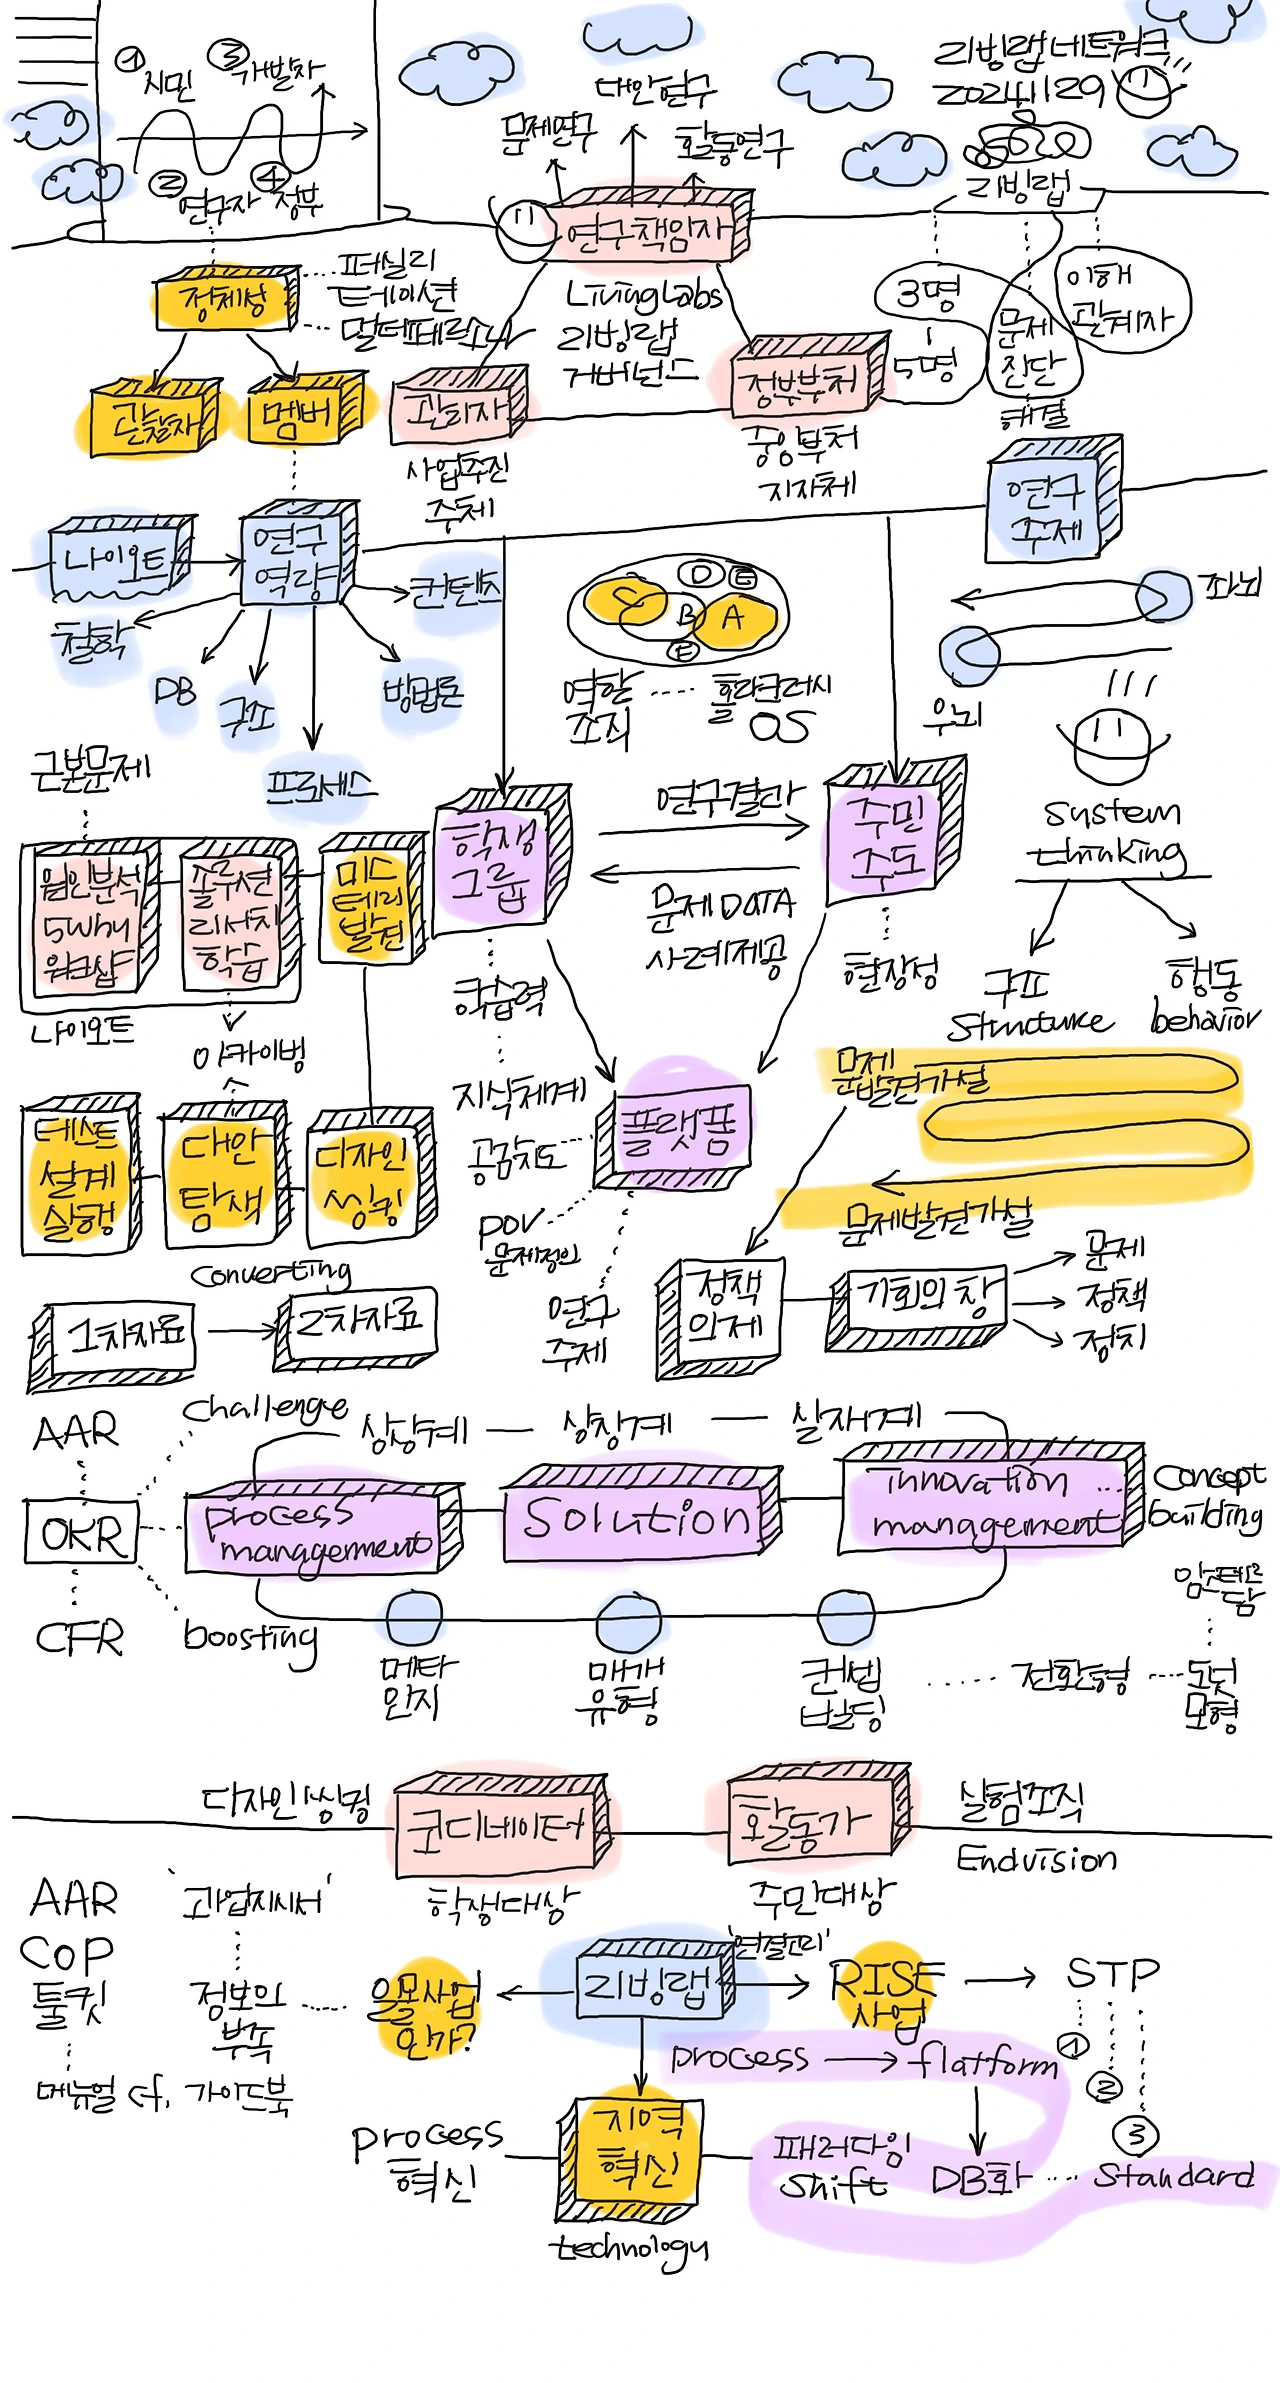 리빙랩네트워크
20241129
① 시민
③ 개발자
② 연구자
④ 정부
문제연구
대안연구
활동연구
연구책임자
리빙랩
3명
5명
문제
진단
해결
이해
관계자
정체성
퍼실리
테이션
관찰자
멤버
Living Labs
리빙랩
거버넌스
관리자
사업추진
주체
정부부처
중앙부처
지자체
연구
주제
나이오트
연구
역량
철학
DB
구조
프로세스
방법론
컨텐츠
C
D
E
B
A
E
역할
조직
홀라크러시
OS
좌뇌
우뇌
system
thinking
구조
structure
행동
behavior
근본문제
원인분석
5why
워크샵
솔루션
리서치
학습
미스
테리
발견
나이오트
아카이빙
학생
그룹
학습력
연구결과
문제 DATA
사례제공
주민
주도
현장성
지식체계
공감지도
POV
문제정의
연구
주제
플랫폼
문제
발견가설
문제발견가설
테스트
설계
실행
대안
탐색
디자인
씽킹
converting
1차자료
2차자료
정책
의제
기회의 창
문제
정책
정치
AAR
challenge
OKR
CFR
boosting
상상계
상징계
실재계
process
management
Solution
innovation
management
concept
building
메타
인지
매개
유형
컨셉
빌딩
전환형
도넛
모형
암스테르
담
디자인씽킹
코디네이터
학생대상
활동가
주민대상
실험조직
Endvision
AAR
CoP
툴킷
메뉴얼 cf. 가이드북
'과업지시서'
정보의
부족
을모사업
인가?
리빙랩
'연결고리'
RISE
사업
STP
①
②
③
process
flatform
process
혁신
지역
혁신
technology
패러다임
shift
DB화
Standard